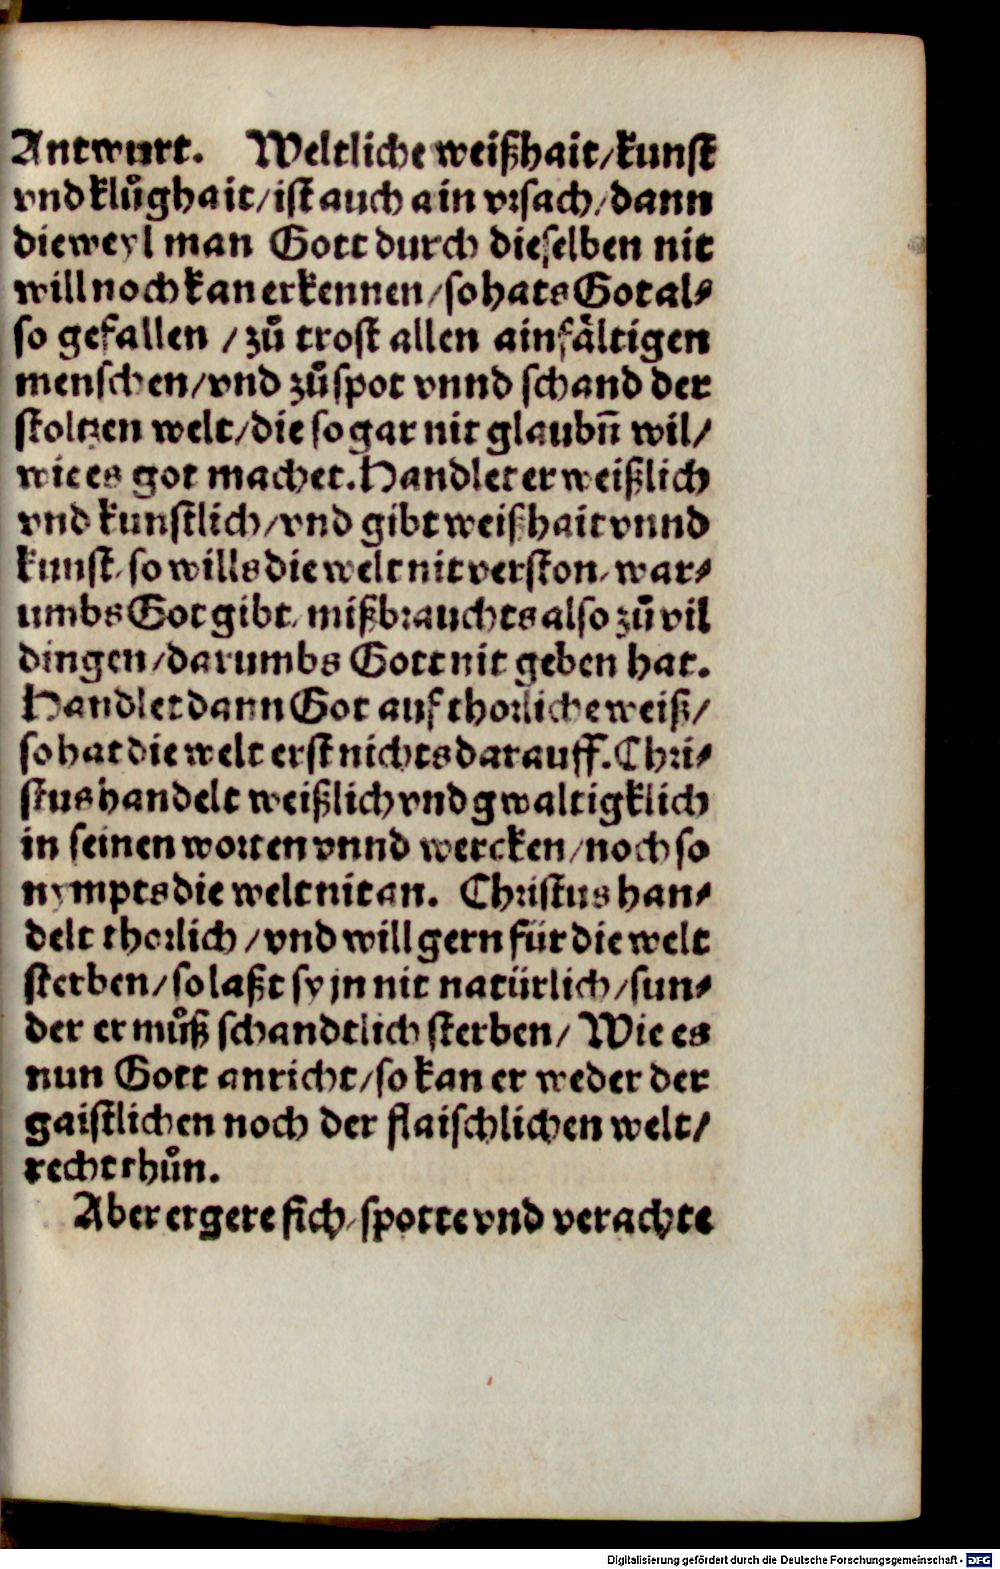 Antwurt. Weltliche weißhait/kunst
vnd kluͦghait/ist auch ain vrsach/dann
dieweyl man Gott durch dieselben nit
will noch kan erkennen/so hats Got al⸗
so gefallen /zuͦ trost allen ainfaͤltigen
menschen/vnd zuͦ spot vnnd schand der
stoltzen welt/die so gar nit glaubn̄ wil/
wie es got machet. Handlet er weißlich
vnd kunstlich/vnd gibt weißhait vnnd
kunst/so wills die welt nit verston/war⸗
umbs Got gibt/mißbrauchts also zuͦ vil
dingen/darumbs Gott nit geben hat.
Handlet dann Got auf thorliche weiß/
so hat die welt erst nichts darauff. Chri⸗
stus handelt weißlich vnd gwaltigklich
in seinen worten vnnd wercken/noch so
nympts die welt nit an. Christus han⸗
delt thorlich /vnd will gern für die welt
sterben/so laßt sy jn nit natürlich/sun⸗
der er muͦß schandtlich sterben/ Wie es
nun Gott anricht/so kan er weder der
gaistlichen noch der flaischlichen welt/
recht thuͦn.
Aber ergere sich/spotte vnd verachte
Digitalisierung gefördert durch die Deutsche Forschungsgemeinschaft - DFG